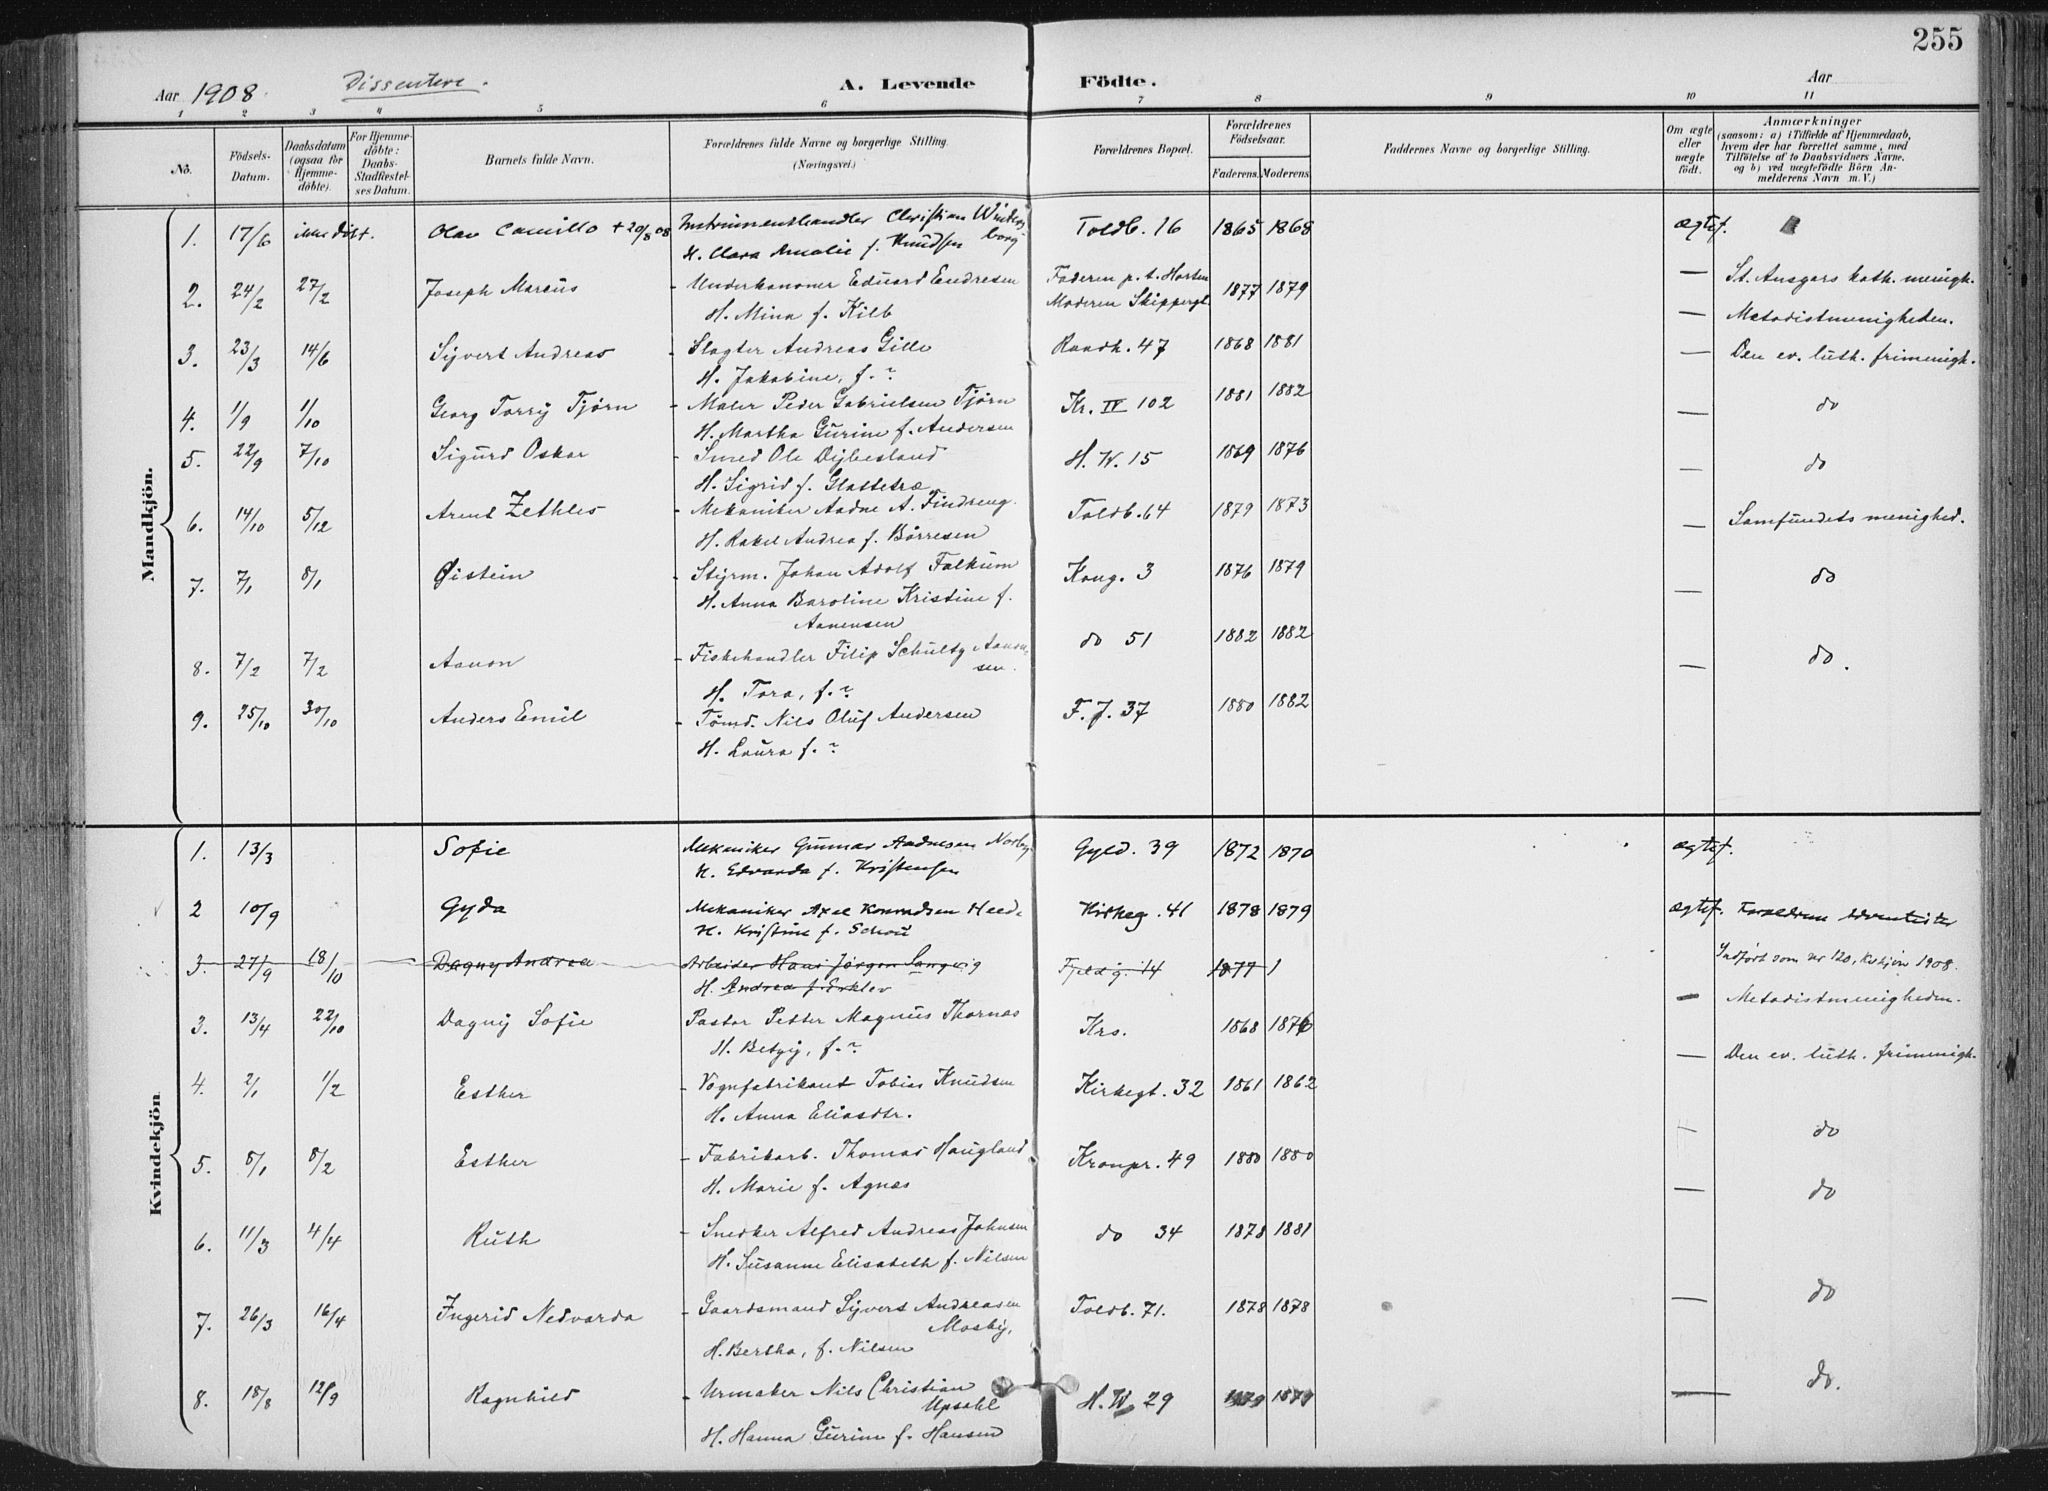 255
Aar 1908. Dissentere. A. Levende Födte. Aar
1 2 3 4 5 6 7 8 9 10 11
No. Födsels-Datum. Daabsdatum (ogsaa for Hjemmedöbte). For Hjemmedöbte: Daabs-Stadfæstelses Datum. Barnets fulde Navn. Forældrenes fulde Navne og borgerlige Stilling. (Næringsvei.) Forældrenes Bopæl. Forældrenes Födselsaar. Faderens. Moderens. Faddernes Navne og borgerlige Stilling. Om ægte eller uægte födt. Anmærkninger (saasom: a) i Tilfælde af Hjemmedaab, hvem der har forrettet samme, med Tilföielse af to Daabsvidners Navne, og b) ved uægtefödte Börn Anmelderens Navn m. V.)
Mandkjön.
1. 17/6 ikke døbt. Olav Camillo + 20/8 08 Instrumenthandler Christian Windersborg Toldb. 16 1865 1868 ægtef.
H. Clara Amalie f. Knudsen
2. 24/2 27/2 Joseph Marcus - Underkanoner Eduard Endresen Faderen p.t. Horten 1877 1879 — St. Ansgars kath. menigh.
H. Mina f. Kilb Moderen Skippergt. — Metodistmenigheden.
3. 23/3 14/6 Sijvert Andreas - Slagter Andreas Gille Raadh. 47 1868 1881 — Den ev. luth. frimenigh.
H. Jakobine, f. ?
4. 1/9 1/10 Georg Torrÿ Tjørn - Maler Peder Gabrielsen Tjørn Kr. IV 102 1881 1882 — do
H. Martha Gurine f. Andersen
5. 22/9 7/10 Sigurd Oskar - Smed Ole Dybesland H. W. 15 1869 1876 — do
H. Sigrid f. Glattetræ
6. 14/10 5/12 Arent Zethles - Mekaniker Aadne A. Findreng. Toldb. 64 1879 1873 — Samfundets menighed.
H. Rakel Andrea f. Børresen
7. 7/1 8/1 Øistein - Styrm. Johan Adolf Falkum Kong. 3 1876 1879 — do
H. Anna Baroline Kristine f.
Aanensen
8. 7/2 7/2 Aanon - Fiskehandler Filip Schultz Aanonsen. do 51 1882 1882 — do.
H. Tora, f. ?
9. 25/10 30/10 Anders Emil - Tømd. Nils Oluf Andersen F. J. 37 1880 1882
H. Laura f. ?
Kvindekjön
1. 13/3 Sofie Mekaniker Gunnar Aadnesen Norby Gyld. 39 1872 1870 ægtef.
H. Edvarda f. Kristensen
2 10/9 Gyda Mekaniker Axel Konradsen Heede Kirkeg. 41 1878 1879 ægtef. Forældrene adventister
H. Kristine f. Schou
3. 27/9 18/10 Dagny Andrea Arbeider Hans Jørgen Langvig Fjeldg. 14 1877 Indført som nr 120, Kvkjön 1908.
H. Andrea f. Erklev
3. 13/4 22/10 Dagnij Sofie Pastor Petter Magnus Thornæs Krs. 1868 1876 — Metodistmenigheden.
H. Betzy, f. ?
4. 2/1 1/2 Esther - Vognfabrikant Tobias Knudsen Kirkegt. 32 1861 1862 — Den ev. luth. frimenigh.
H. Anna Eliasdtr.
5. 8/1 8/2 Esther - Fabrikarb. Thomas Haugland Kronpr. 49 1880 1880 — do
H. Marie f. Agnæs
6. 11/3 4/4 Ruth - Snedker Alfred Andreas Johnsen do 34 1878 1881 — do
H. Susanne Elisabeth f. Nilsen
7. 26/3 16/4 Ingerid Nedvarda - Gaardsmand Sijvert Andreasen Toldb. 71. 1878 1878 — do
Mosby,
H. Bertha, f. Nilsen
8. 18/8 12/9 Ragnhild - Urmaker Nils Christian H. W. 29 1879 1879 — do.
Upsahl
H. Hanna Gurine f. Hansen